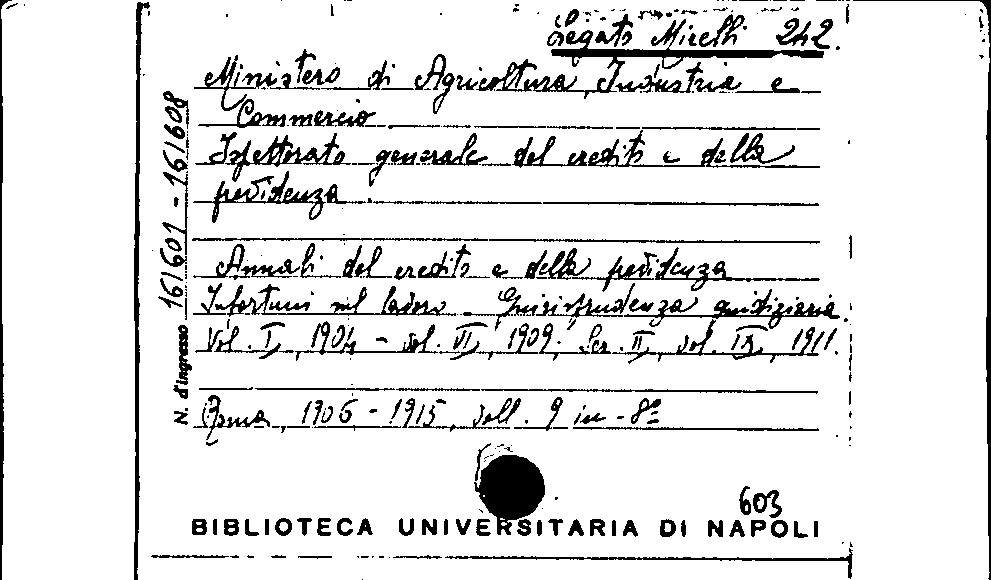 Legato Mirelli 242.
Ministero di Agricoltura, Industria e
Commercio.
Ispettorato generale del credito e della
previdenza.
Annali del credito e della previdenza
Infortuni sul lavoro - Giurisprudenza giudiziaria.
Vol. I, 1904 - vol. VI, 1909; Ser. II, vol. IX, 1911.
Roma, 1906 - 1915, voll. 9 in - 8º
N. d'ingresso 161601 - 161608
603
BIBLIOTECA UNIVERSITARIA DI NAPOLI